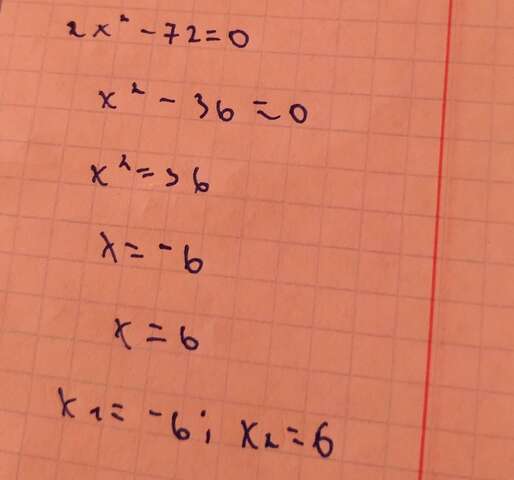 2x² - 72 = 0
x² - 36 = 0
x² = 36
x = -6
x = 6
x₁ = -6; x₂ = 6